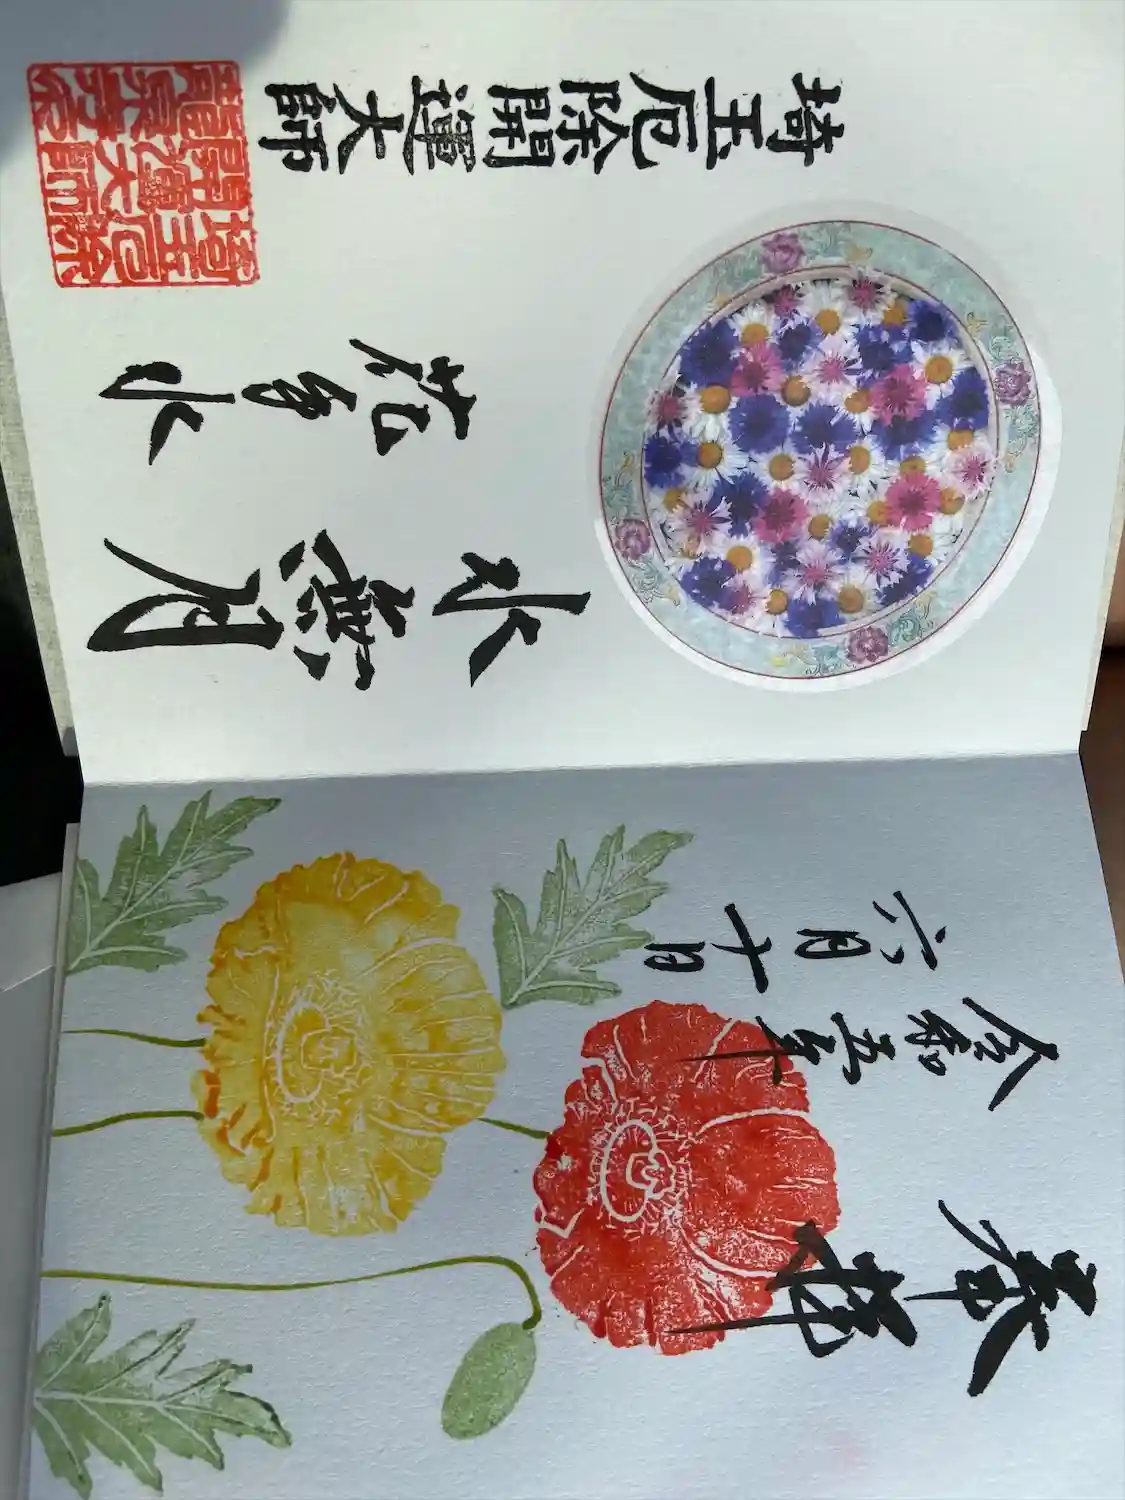 奉拝
令和五年
六月十日
水無月
花手水
埼玉厄除開運大師
埼玉厄除
開運大師
龍泉寺